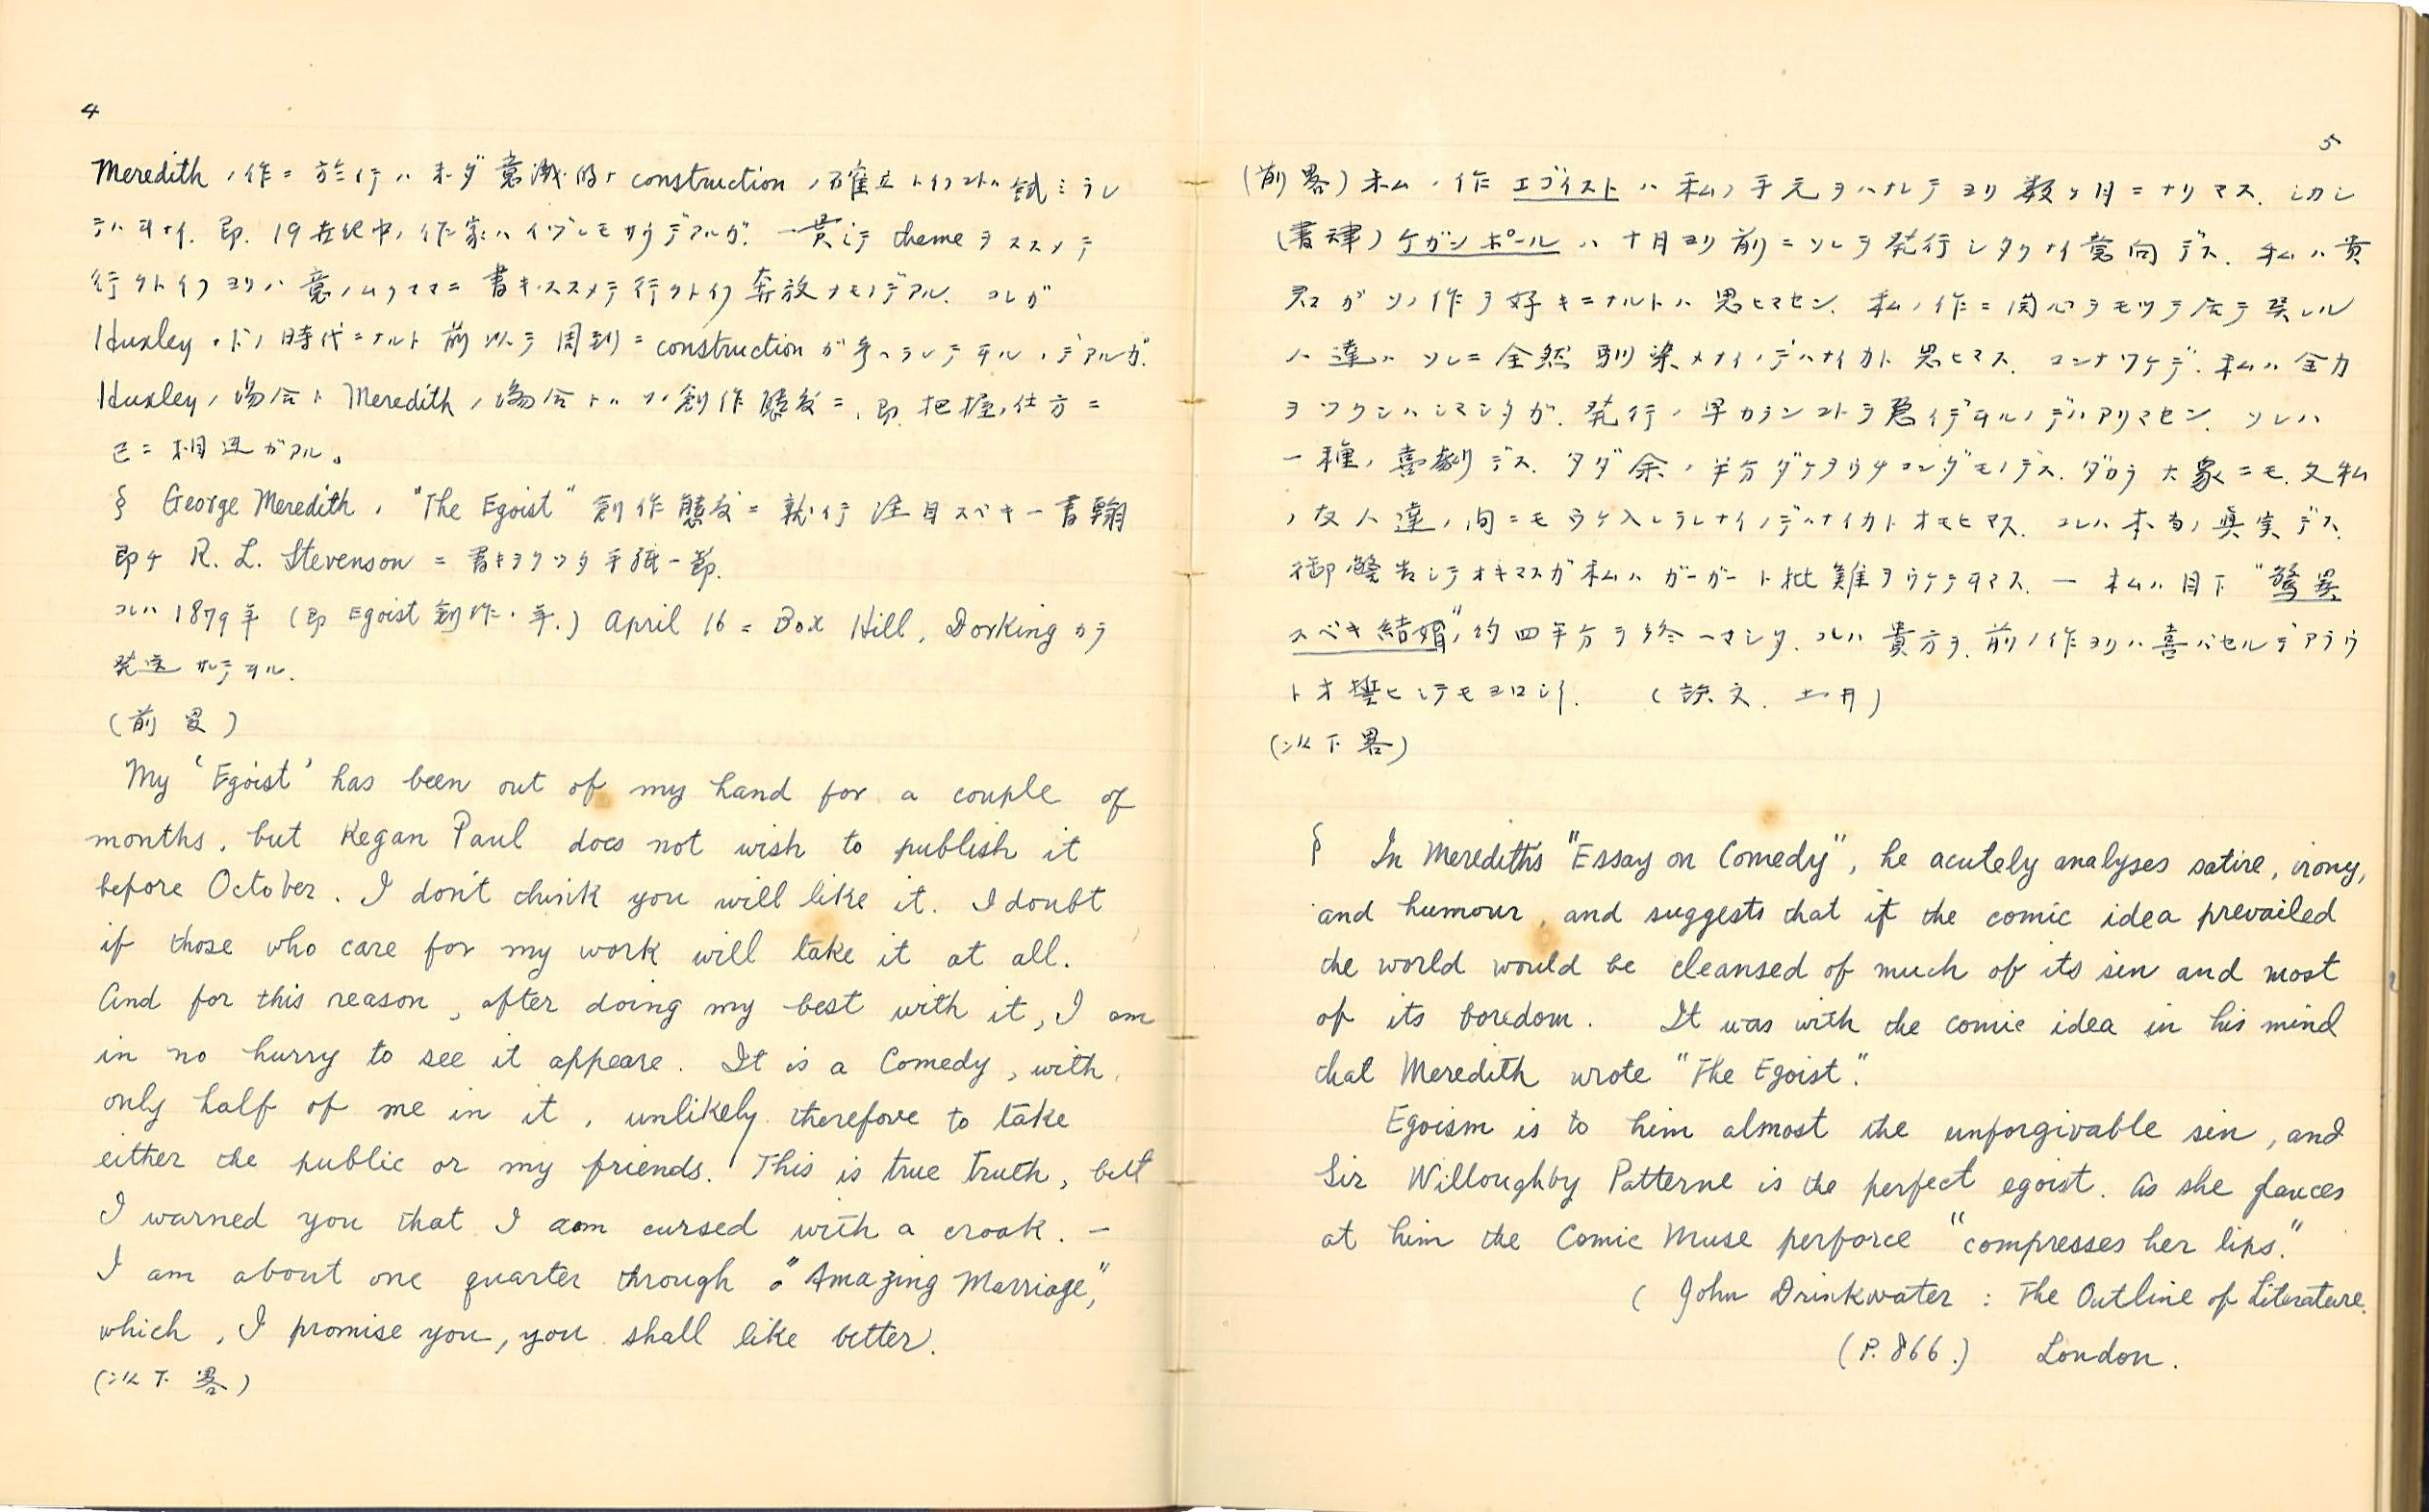 4
Meredith ノ作ニ於イテハ未ダ意識的ナ construction ノ確立トイフコトハ試ミラレ
テハヰナイ. 即. 19世紀中ノ作家ハイヅレモサウデアルガ. 一貫シテ theme ヲススメテ
行クトイフヨリハ意ノムクママニ書キススメテ行クトイフ奔放ナモノデアル. コレガ
Huxley ナドノ時代ニナルト前以テ周到ニ construction ガ考ヘラレテヰルノデアルガ.
Huxley ノ場合ト Meredith ノ場合トハソノ創作態度ニ, 即. 把握ノ仕方ニ
已ニ相違ガアル。
§ George Meredith ノ "The Egoist" 創作態度ニ就イテ注目スベキ一書翰
即チ R. L. Stevenson ニ書キヲクツタ手紙ノ一節.
コレハ 1879年 (即 Egoist 創作ノ年.) April 16 ニ Box Hill, Dorking カラ
発送サレテヰル.
(前畧)
My 'Egoist' has been out of my hand for a couple of
months, but Kegan Paul does not wish to publish it
before October. I don't think you will like it. I doubt
if those who care for my work will take it at all.
And for this reason, after doing my best with it, I am
in no hurry to see it appeare. It is a Comedy, with
only half of me in it, unlikely therefore to take
either the public or my friends. This is true truth, but
I warned you that I am cursed with a croak. —
I am about one quarter through "Amazing Marriage,"
which, I promise you, you shall like better.
(以下畧)
5
(前畧) 私ノ作エゴイストハ私ノ手元ヲハナレテヨリ数ヶ月ニナリマス. シカシ
(書肆) ケガンポールハ十月ヨリ前ニソレヲ発行シタクナイ意向デス. 私ハ貴
君ガソノ作ヲ好キニナルトハ思ヒマセン. 私ノ作ニ関心ヲモツテ居テ呉レル
人達ハソレニ全然馴染メナイノデハナイカト思ヒマス. コンナワケデ. 私ハ全力
ヲツクシハシマシタガ. 発行ノ早カランコトヲ急イデヰルノデハアリマセン. ソレハ
一種ノ喜劇デス. タダ余ノ半分ダケヲウチコンダモノデス. ダカラ大衆ニモ. 又私
ノ友人達ノ間ニモウケ入レラレナイノデハナイカトオモヒマス. コレハ本当ノ真実デス.
御警告シテオキマスガ私ハガーガート批難ヲウケテヰマス. — 私ハ目下 "驚異
スベキ結婚" ノ約四半分ヲ終ヘマシタ. コレハ貴方ヲ. 前ノ作ヨリハ喜バセルデアラウ
トオ誓ヒシテモヨロシイ. (訳文. 土井)
(以下畧)
§ In Meredith's "Essay on Comedy", he acutely analyses satire, irony,
and humour, and suggests that if the comic idea prevailed
the world would be cleansed of much of its sin and most
of its boredom. It was with the comic idea in his mind
that Meredith wrote "The Egoist".
Egoism is to him almost the unforgivable sin, and
Sir Willoughby Patterne is the perfect egoist. As she glances
at him the Comic Muse perforce "compresses her lips."
( John Drinkwater : The Outline of Literature.
(P. 866.) London.